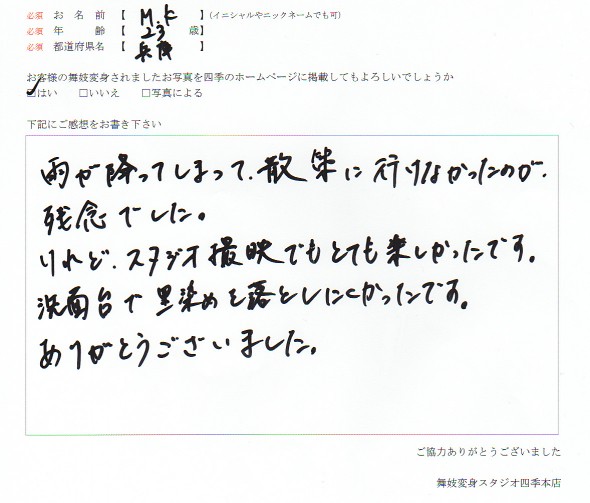 必須 お名前 【 M.K 】(イニシャルやニックネームでも可)
必須 年齢 【 23 歳】
必須 都道府県名 【 兵庫 】
お客様の舞妓変身されましたお写真を四季のホームページに掲載してもよろしいでしょうか
☑はい □いいえ □写真による
下記にご感想をお書き下さい
雨が降ってしまって、散策に行けなかったのが、
残念でした。
けれど、スタジオ撮映でもとても楽しかったです。
洗面台で黒染めを落としにくかったです。
ありがとうございました。
ご協力ありがとうございました
舞妓変身スタジオ四季本店